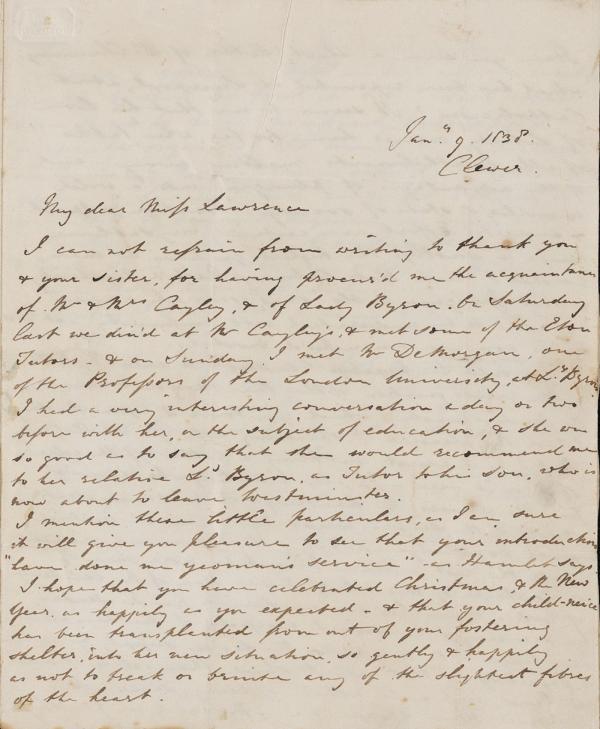 Jany 9. 1838.
Clewer.
My dear Miss Lawrence
I can not refrain from writing to thank you
& your sister, for having procur'd me the acquaintance
of Mr & Mrs Cayley, & of Lady Byron. On Saturday
last we din'd at Mr Cayley's, & met some of the Eton
Tutors - & on Sunday I met Mr DeMorgan, one
of the Professors of the London University, at Ly Byron's
I had a very interesting conversation a day or two
before with her, on the subject of education, & she was
so good as to say that she would recommend me
to her relative Ld Byron, as Tutor to his son, who is
now about to leave Westminster.
I mention these little particulars, as I am sure
it will give you pleasure to see that your introductions
"have done me yeoman's service" - as Hamlet says
I hope that you have celebrated Christmas, & the New
Year, as happily as you expected - & that your child-niece
has been transplanted from out of your fostering
shelter, into her new situation, so gently & happily
as not to break or bruise any of the slightest fibres
of the heart.